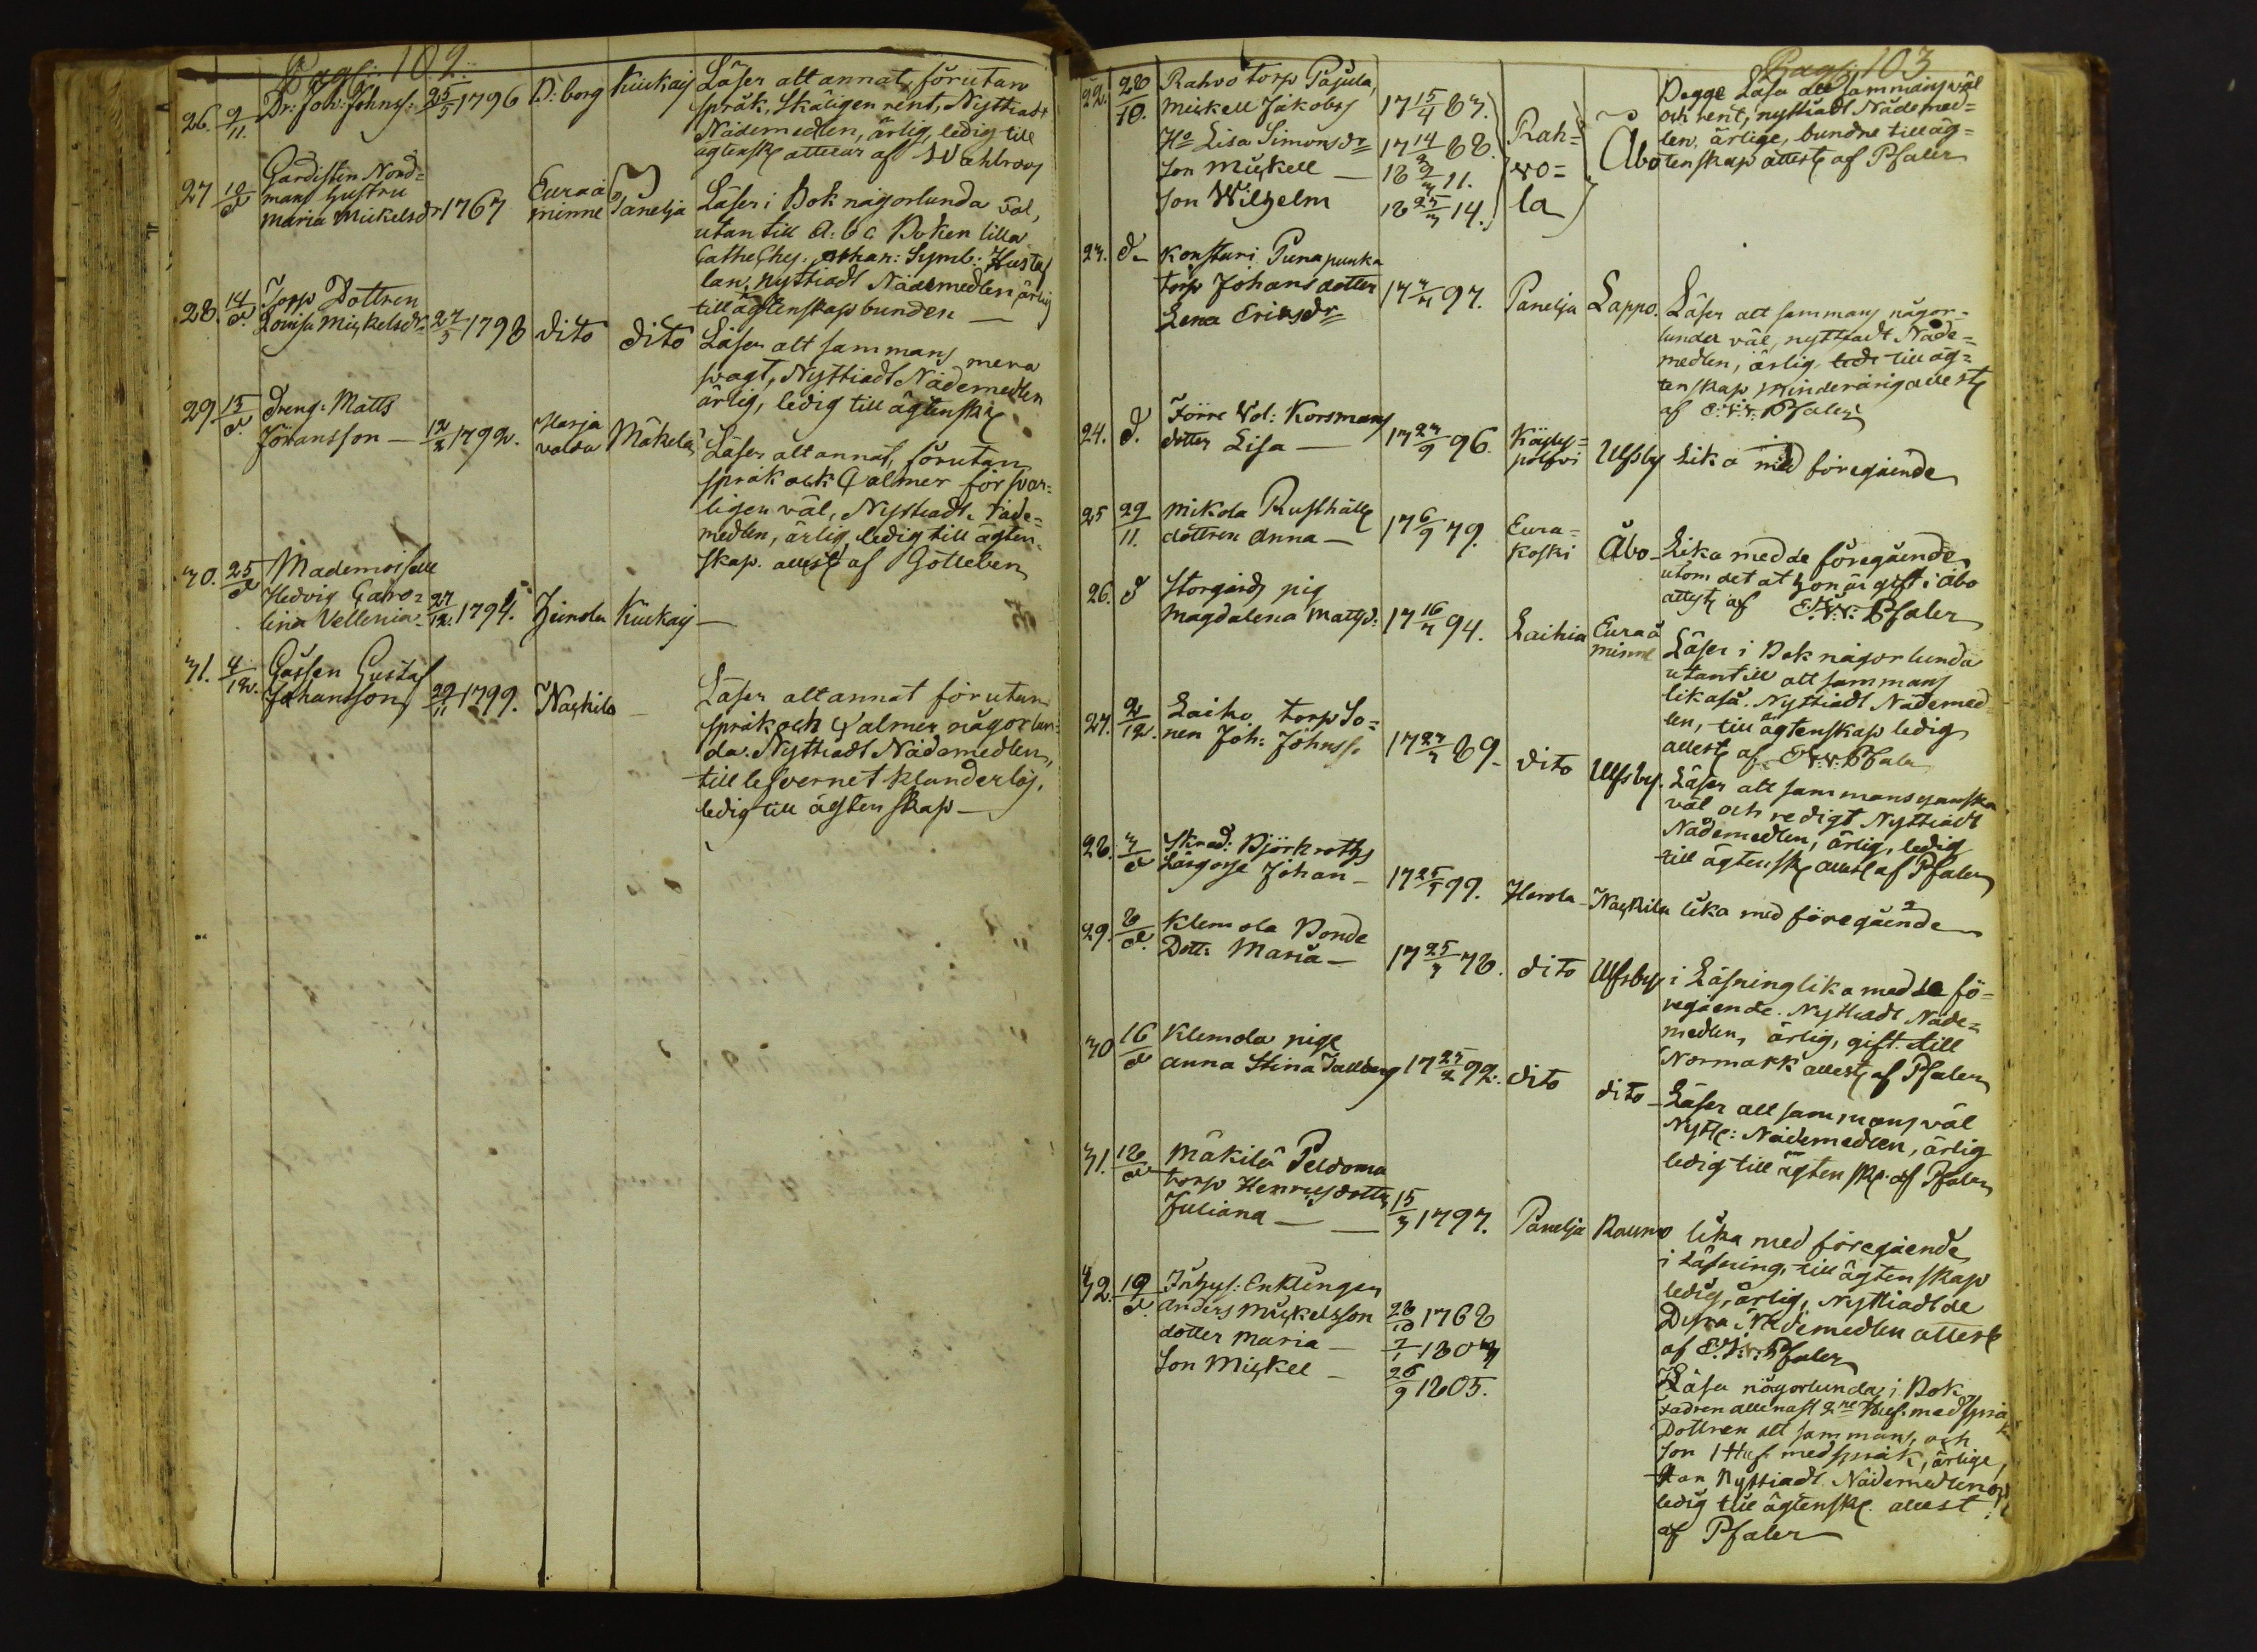 Pag: 102.
26. 9/11. Dr: Joh: Johnss: 25/5 1796 B: borg Kiukais Läser alt annat förutan
språk, Skäligen rent, Nyttiadt
Nådemedlen, ärlig, ledig till
ägtensk attesar af Wahlroos
27 12/d Gardisten Nord=
mans hustru
Maria Mickelsdr 1767 Euraå
minne Panelja Läser i Bok någorlunda väl,
utan till A: b c Boken lilla
Cathe Ches: Athan: Symb: Husta
lan, nyttiadt Nådemedlen ärlig
till ägtenskap bunden
28. 14/d Torp Dottren
Lovisa Mickelsdr 27/5 1798 dito dito Läser alt sammans mera
svagt, Nyttiadt Nådemedlen
ärlig, ledig till ägtensk
29 15/d Dreng: Matts
Jöransson 12/2 1792. Harja
valda Mäkelä Läser alt annat, förutan
språk och Psalmer försvar=
ligen väl, Nyttiadt Nåde=
medlen, ärlig ledig till ägten
skap. attest af Gottleben
30. 25/d Mademoiselle
Hedvig Caro=
lina Vellenia 27/12 1794. Heinola Kiukais
31. 4/12. Gossen Gustaf
Johansson 29/11 1799. Nackila Läser alt annat förutan
språk och Psalmer någorlun=
da. Nyttiadt Nådemedlen,
till lefvernet klanderlös,
ledig till ägtenskap
Pag: 103
22. 28/10. Rahvo torp Pajula,
Mickell Jakobss 17 15/4 87.
Ho Lisa Simonsdr 17 14 88.
Son Mickell 18 9/3 11.
Son Wilhelm 18 25/3 14.
Rah=
vo=
la Åbo
Begge Läsa alt sammans väl
och rent, nyttiadt Nådemed=
len, ärlige, bundne till äg=
tenskap attest af Pfaler
23. d Konsturi Punapunka
torp Johans dotter
Lena Ericsdr 17 97. Panelja Lappo. Läser alt sammans någor=
lunda väl, nyttiadt Nåde=
medlen, ärlig till äg=
tenskap minderårig attest
af E:V:v: Pfaler
24. d. Förre Vol: Korsmans
dotter Lisa 17 27/9 96. Köyly=
pölfvi Ulfsby Lika med föregående
25 29/11. Mikola Rusthålls
dottren Anna 17 6/9 79. Eura=
koski Åbo Lika med de föregående
utom det at hon är gift i Åbo
attest af E:V:v: Pfaler
26. d Storgårds pig
Magdalena Mattsd: 17 16/7 94. Laihia Euraå
minne Läser i Bok någorlunda
utantill alt sammans
likaså. Nyttiadt Nådemed
len, till ägtenskap ledig
attest af E:V:v: Pfaler
27. 2/12. Laiho torp So=
nen Joh: Johnss. 17 27/7 89. dito Ulfsby. Läser alt sammans ganska
väl och redigt Nyttiadt
Nådemedlen, ärlig, ledig
till ägtensk attest af Pfaler
28. 7/d Skrad: Björkroths
Lärgosse Johan 17 25/5 99. Harola Nackila lika med föregående
29. 8/d. Klemola Bonde
Dott: Maria 17 25/7 78. dito Ulfsby i Läsning lika med de fö=
regående. Nyttiadt Nåde=
medlen, ärlig, gift till
Normark attest af Pfaler
30 16/d Klemola pige
Anna Stina Tallberg 17 25/2 92. dito dito Läser alt sammans väl
Nytt: Nådemedlen, ärlig
ledig till ägtensk: af Pfaler
31. 18/d Mäkilä Peldoma
torp Henrics dotter
Juliana 15/3 1797. Panelja Raumo lika med föregående
i Läsning, till ägtenskap
ledig, ärlig, Nyttiadt de
Dyra Nådemedlen attest
af E:V:v: Pfaler
32. 19/d. Inhys: Enklingen
Anders Mickelsson 28/10 1768
dotter Maria 7/1 1803
Son Mickel 26/9 1805.
Läsa någorlunda i Bok
Fadren allenast 2ne Huf: med språk
Dottren alt sammans, och
Son 1 Huf: med språk, ärlige,
Han Nyttiadt Nådemedlen och
ledig till ägtensk. attest
af Pfaler